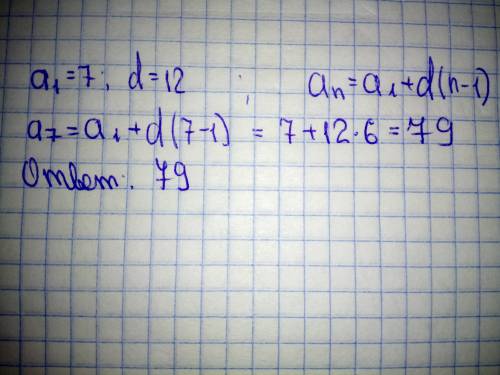 a₁=7; d=12 ; aₙ=a₁+d(n-1)
a₇=a₁+d(7-1) = 7+12·6=79
Ответ: 79